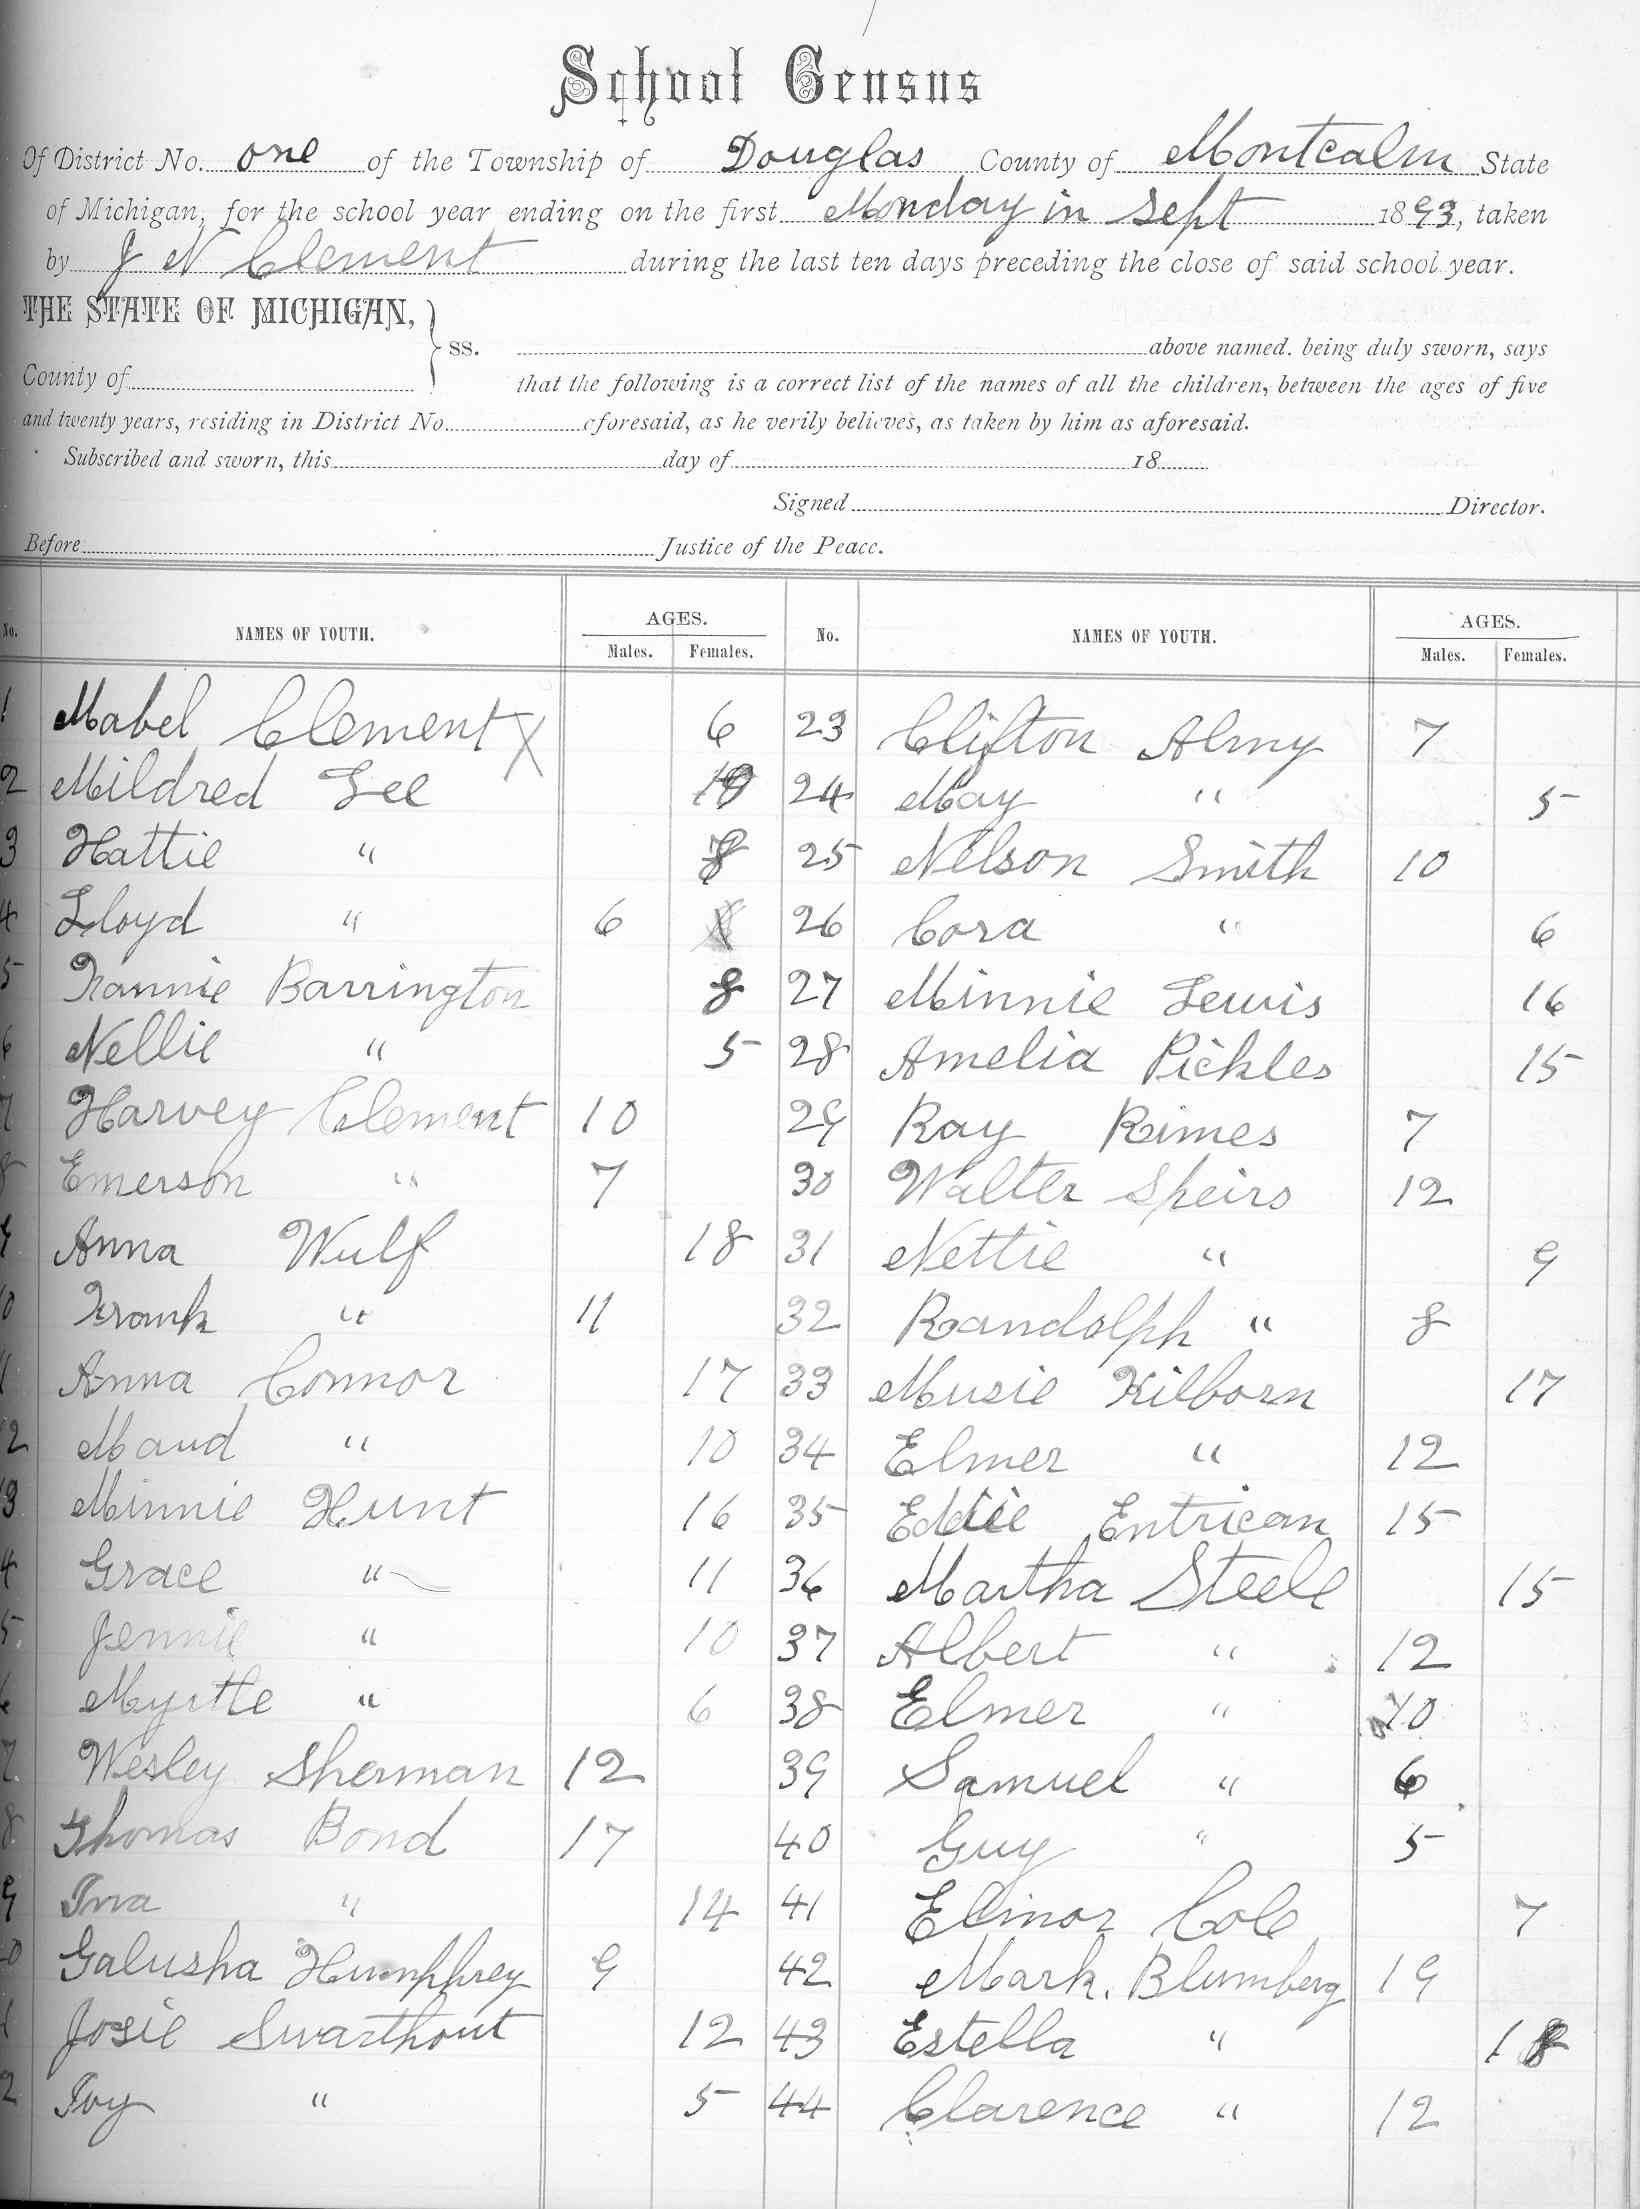 School Census
Of District No. one of the Township of Douglas County of Montcalm State
of Michigan, for the school year ending on the first Monday in Sept 1893, taken
by J N Clement during the last ten days preceding the close of said school year.
THE STATE OF MICHIGAN,
ss. above named. being duly sworn, says
County of that the following is a correct list of the names of all the children, between the ages of five
and twenty years, residing in District No. aforesaid, as he verily believes, as taken by him as aforesaid.
Subscribed and sworn, this day of 18
Signed Director.
Before Justice of the Peace.
No. NAMES OF YOUTH. AGES. Males. Females. No. NAMES OF YOUTH. AGES. Males. Females.
1 Mabel Clement X 6 23 Clifton Almy 7
2 Mildred Lee 24 May " 5
3 Hattie " 8 25 Nelson Smith 10
4 Lloyd " 6 26 Cora " 6
5 Fannie Barrington 8 27 Minnie Lewis 16
6 Nellie " 5 28 Amelia Pickles 15
7 Harvey Clement 10 29 Ray Rimes 7
8 Emerson " 7 30 Walter Speirs 12
9 Anna Wulf 18 31 Nettie " 9
0 Frank " 11 32 Randolph " 8
1 Anna Connor 17 33 Musie Kilborn 17
2 Maud " 10 34 Elmer " 12
3 Minnie Hunt 16 35 Eddie Entrican 15
4 Grace " 11 36 Martha Steele 15
5 Jennie " 10 37 Albert " 12
6 Myrtle " 6 38 Elmer " 10
7 Wesley Sherman 12 39 Samuel " 6
8 Thomas Bond 17 40 Guy " 5
9 Iva " 14 41 Elinor Cole 7
0 Galusha Humphrey 9 42 Mark. Blumberg 19
1 Josie Swarthout 12 43 Estella " 18
2 Ivy " 5 44 Clarence " 12